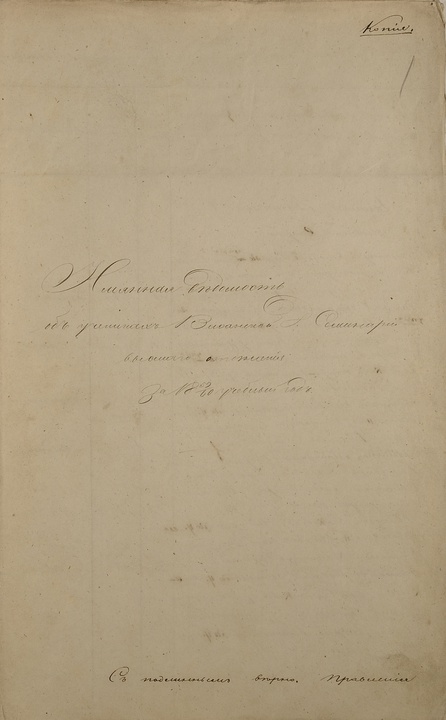 Копія.
Имянная Вѣдомость
объ ученикахъ Виѳанской Семинаріи
высшаго отдѣленія
за 18 учебный годъ
Съ подлиннымъ вѣрно. Правленія